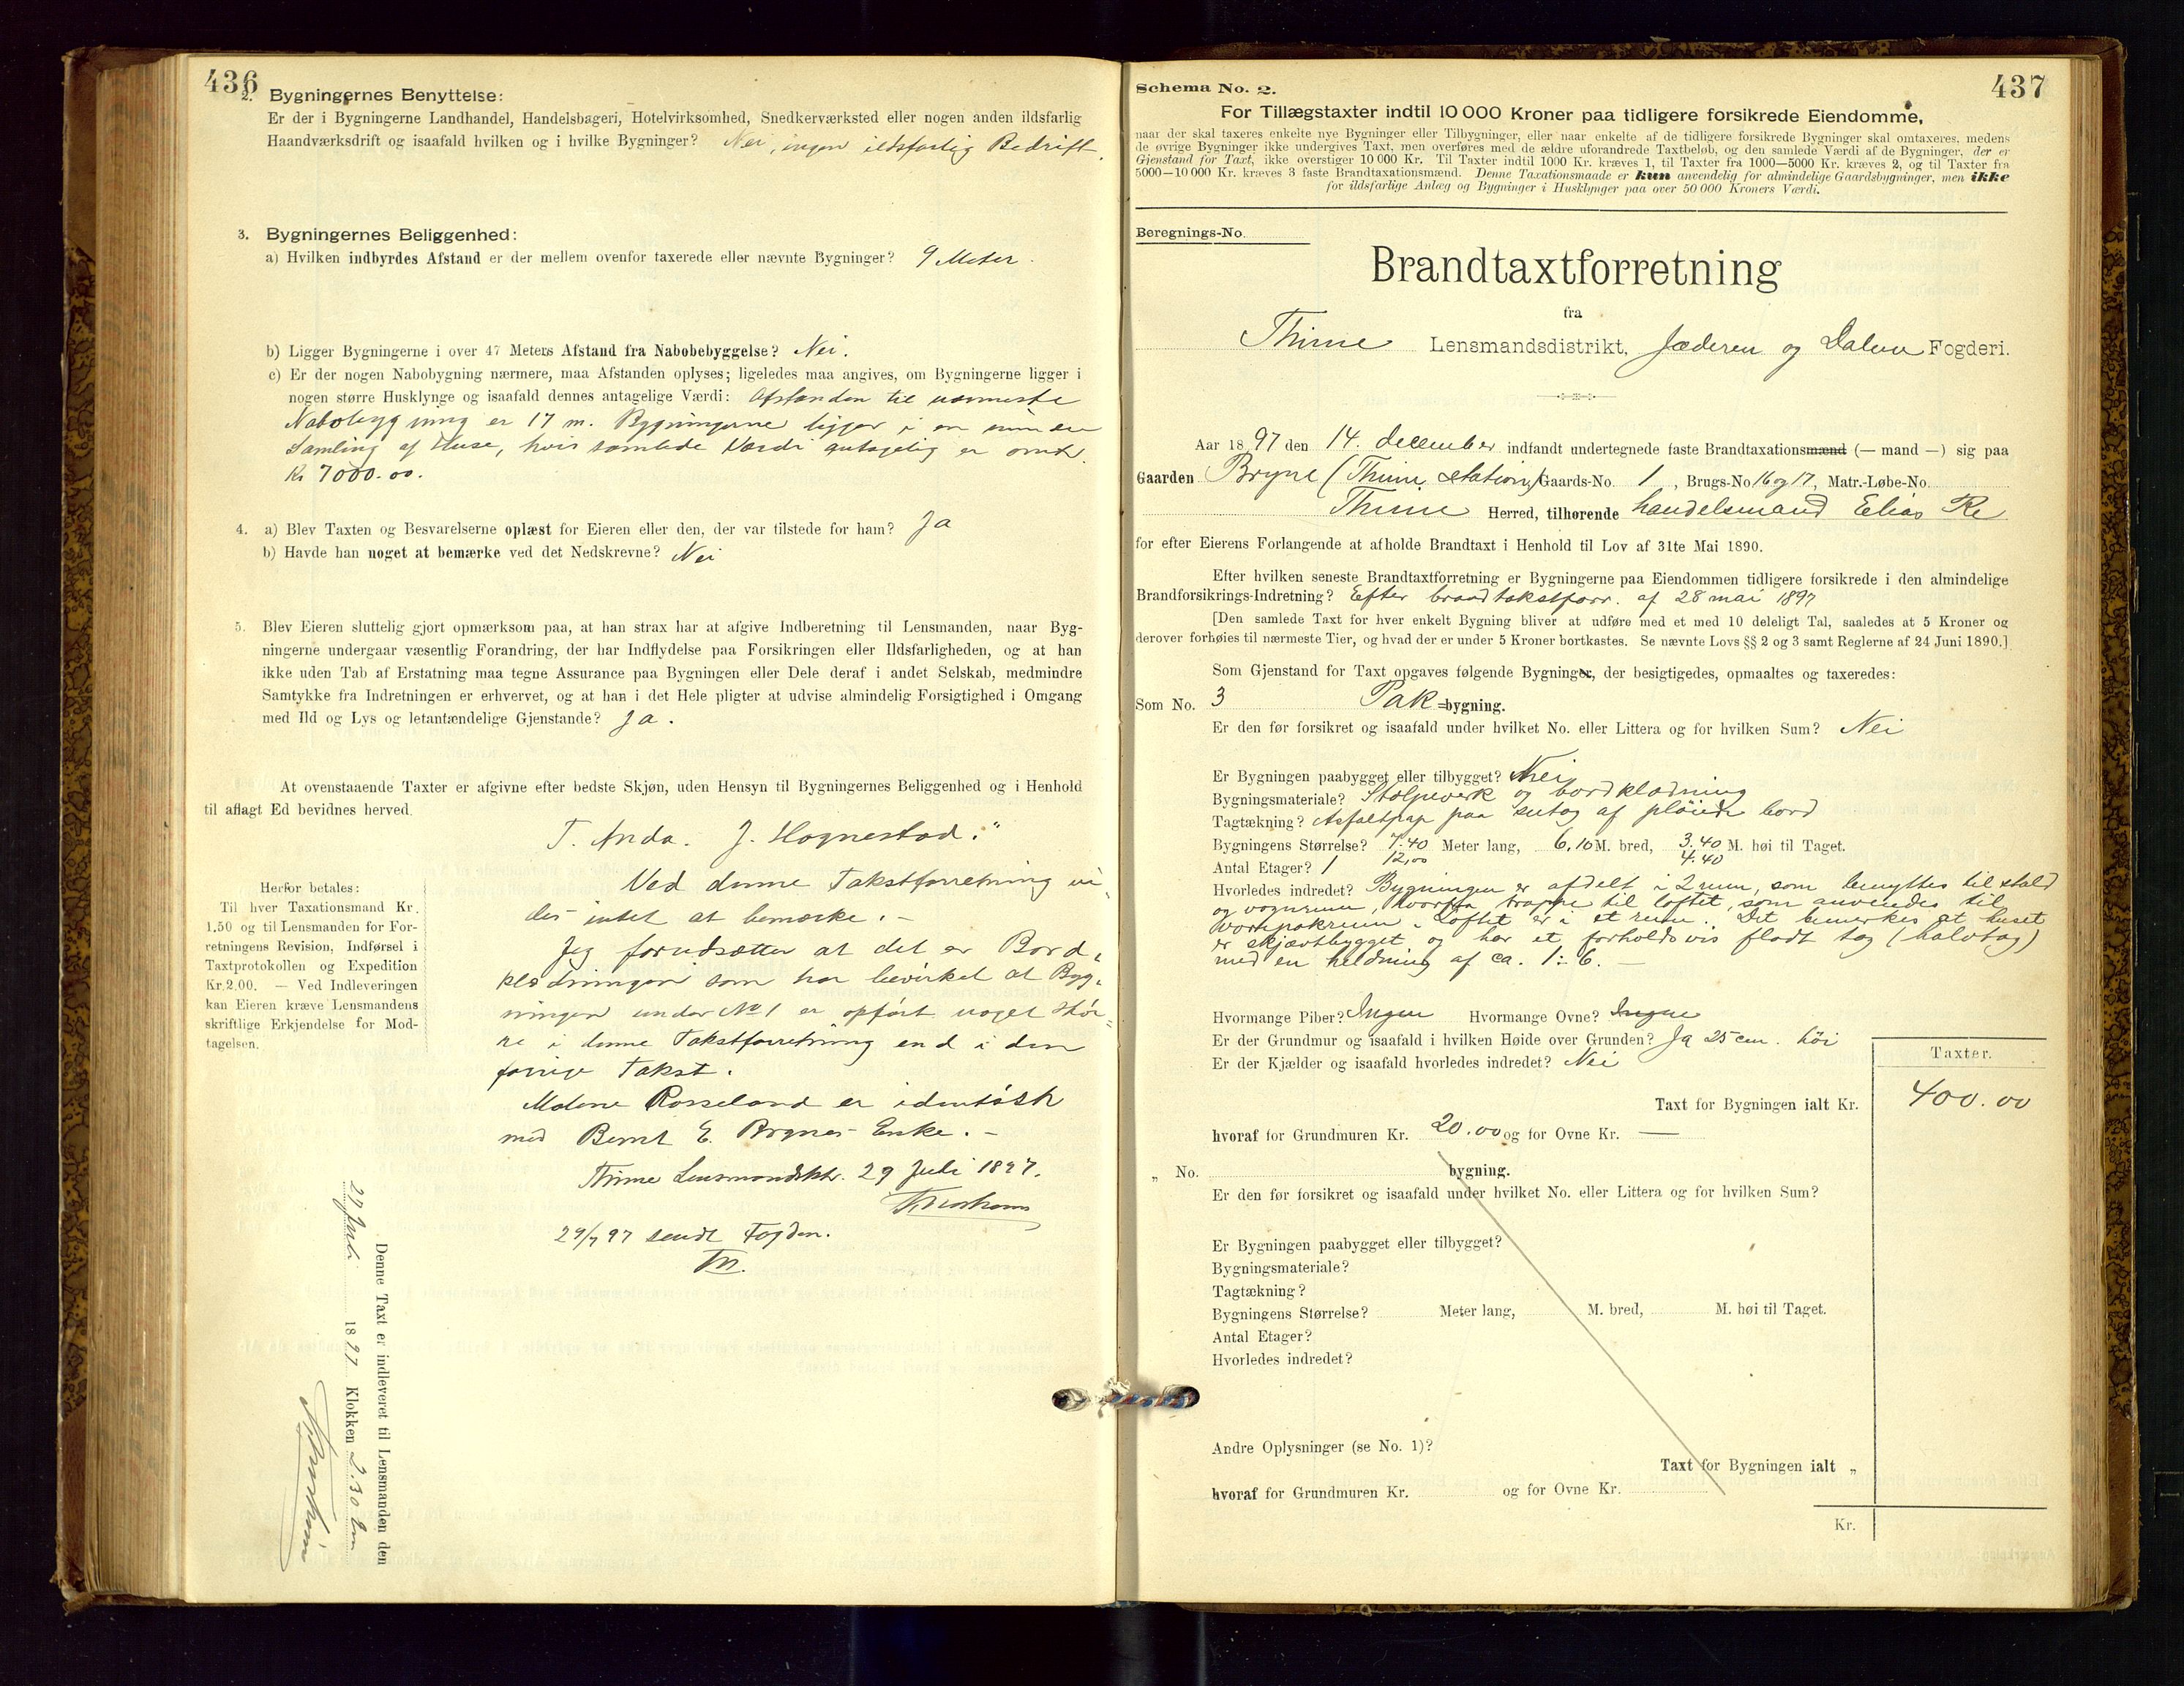 436
2. Bygningernes Benyttelse:
Er der i Bygningerne Landhandel, Handelsbageri, Hotelvirksomhed, Snedkerværksted eller nogen anden ildsfarlig
Haandværksdrift og isaafald hvilken og i hvilke Bygninger? Nei, ingen ildsfarlig Bedrift.
3. Bygningernes Beliggenhed:
a) Hvilken indbyrdes Afstand er der mellem ovenfor taxerede eller nævnte Bygninger? 9 Meter.
b) Ligger Bygningerne i over 47 Meters Afstand fra Nabobebyggelse? Nei.
c) Er der nogen Nabobygning nærmere, maa Afstanden oplyses; ligeledes maa angives, om Bygningerne ligger i
nogen større Husklynge og isaafald dennes antagelige Værdi: Afstanden til nærmeste
Nabobygning er 17 m. Bygningerne ligger i en
Samling af Huse, hvis samlede Værdi antagelig er omtr.
Kr 7000.00.
4. a) Blev Taxten og Besvarelserne oplæst for Eieren eller den, der var tilstede for ham? Ja
b) Havde han noget at bemærke ved det Nedskrevne? Nei
5. Blev Eieren sluttelig gjort opmærksom paa, at han strax har at afgive Indberetning til Lensmanden, naar Byg-
ningerne undergaar væsentlig Forandring, der har Indflydelse paa Forsikringen eller Ildsfarligheden, og at han
ikke uden Tab af Erstatning maa tegne Assurance paa Bygningen eller Dele deraf i andet Selskab, medmindre
Samtykke fra Indretningen er erhvervet, og at han i det Hele pligter at udvise almindelig Forsigtighed i Omgang
med Ild og Lys og letantændelige Gjenstande? Ja.
At ovenstaaende Taxter er afgivne efter bedste Skjøn, uden Hensyn til Bygningernes Beliggenhed og i Henhold
til aflagt Ed bevidnes herved.
T. Anda. J. Hognestad."
Ved denne Takstforretning vi-
des intet at bemærke. -
Jeg forudsætter at det er Bord-
klædningen som har bevirket at Byg-
ningen under No 1 er opført noget Stør-
re i denne Takstforretning end i den
forrige Takst.
Malene Rosseland er identisk
med Bernt E. Brynes Enke. -
Thime Lensmandsktr. 29 Juli 1897.
29/7 97 sendt Fogden.
Herfor betales:
Til hver Taxationsmand Kr.
1.50 og til Lensmanden for For-
retningens Revision, Indførsel i
Taxtprotokollen og Expedition
Kr. 2.00. — Ved Indleveringen
kan Eieren kræve Lensmandens
skriftlige Erkjendelse for Mod-
tagelsen.
Denne Taxt er indleveret til Lensmanden den
29 Juli 1897 Klokken 2.30 Em
437
Schema No. 2.
For Tillægstaxter indtil 10 000 Kroner paa tidligere forsikrede Eiendomme,
naar der skal taxeres enkelte nye Bygninger eller Tilbygninger, eller naar enkelte af de tidligere forsikrede Bygninger skal omtaxeres, medens
de øvrige Bygninger ikke undergives Taxt, men overføres med de ældre uforandrede Taxtbeløb, og den samlede Værdi af de Bygninger, der er
Gjenstand for Taxt, ikke overstiger 10 000 Kr. Til Taxter indtil 1000 Kr. kræves 1, til Taxter fra 1000—5000 Kr. kræves 2, og til Taxter fra
5000—10 000 Kr. kræves 3 faste Brandtaxationsmænd. Denne Taxationsmaade er kun anvendelig for almindelige Gaardsbygninger, men ikke
for ildsfarlige Anlæg og Bygninger i Husklynger paa over 50 000 Kroners Værdi.
Beregnings-No.
Brandtaxtforretning
fra
Thime Lensmandsdistrikt, Jæderen og Dalene Fogderi.
Aar 1897 den 14. december indfandt undertegnede faste Brandtaxationsmænd (— mand —) sig paa
Gaarden Bryne (Thime station) Gaards-No. 1, Brugs-No 16 og 17, Matr.-Løbe-No.
Thime Herred, tilhørende handelsmand Elias Re
for efter Eierens Forlangende at afholde Brandtaxt i Henhold til Lov af 31te Mai 1890.
Efter hvilken seneste Brandtaxtforretning er Bygningerne paa Eiendommen tidligere forsikrede i den almindelige
Brandforsikrings-Indretning? Efter brandtakstforr. af 28 mai 1897
[Den samlede Taxt for hver enkelt Bygning bliver at udføre med et med 10 deleligt Tal, saaledes at 5 Kroner og
derover forhøies til nærmeste Tier, og hvad der er under 5 Kroner bortkastes. Se nævnte Lovs §§ 2 og 3 samt Reglerne af 24 Juni 1890.]
Som Gjenstand for Taxt opgaves følgende Bygninger, der besigtigedes, opmaaltes og taxeredes:
Som No. 3 Pak-bygning.
Er den før forsikret og isaafald under hvilket No. eller Littera og for hvilken Sum? Nei
Er Bygningen paabygget eller tilbygget? Nei
Bygningsmateriale? Stolpeverk og bordklædning
Tagtækning? Asfaltpap paa sutag af pløiede bord
Bygningens Størrelse? 7.40 Meter lang, 6,10 M. bred, 3.40 M. høi til Taget.
Antal Etager? 1 12,00 4.40
Hvorledes indredet? Bygningen er afdelt i 2 rum, som benyttes til stald
og vognrum, hvorfra trappe til loftet, som anvendes til
pakrum. Loftet er i et rum. Det bemerkes at huset
er skjævtbygget og har et forholdsvis fladt tag (halvtag)
med en heldning af ca. 1:6. -
Hvormange Piber? Ingen Hvormange Ovne? Ingen
Er der Grundmur og isaafald i hvilken Høide over Grunden? Ja 25 cm. høi
Er der Kjælder og isaafald hvorledes indredet? Nei
Taxter.
Taxt for Bygningen ialt Kr. 400.00
hvoraf for Grundmuren Kr. 20.00 og for Ovne Kr. —
„ No. bygning.
Er den før forsikret og isaafald under hvilket No. eller Littera og for hvilken Sum?
Er Bygningen paabygget eller tilbygget?
Bygningsmateriale?
Tagtækning?
Bygningens Størrelse? Meter lang, M. bred, M. høi til Taget.
Antal Etager?
Hvorledes indredet?
Andre Oplysninger (se No. 1)?
Taxt for Bygningen ialt „
hvoraf for Grundmuren Kr. og for Ovne Kr.
Kr.